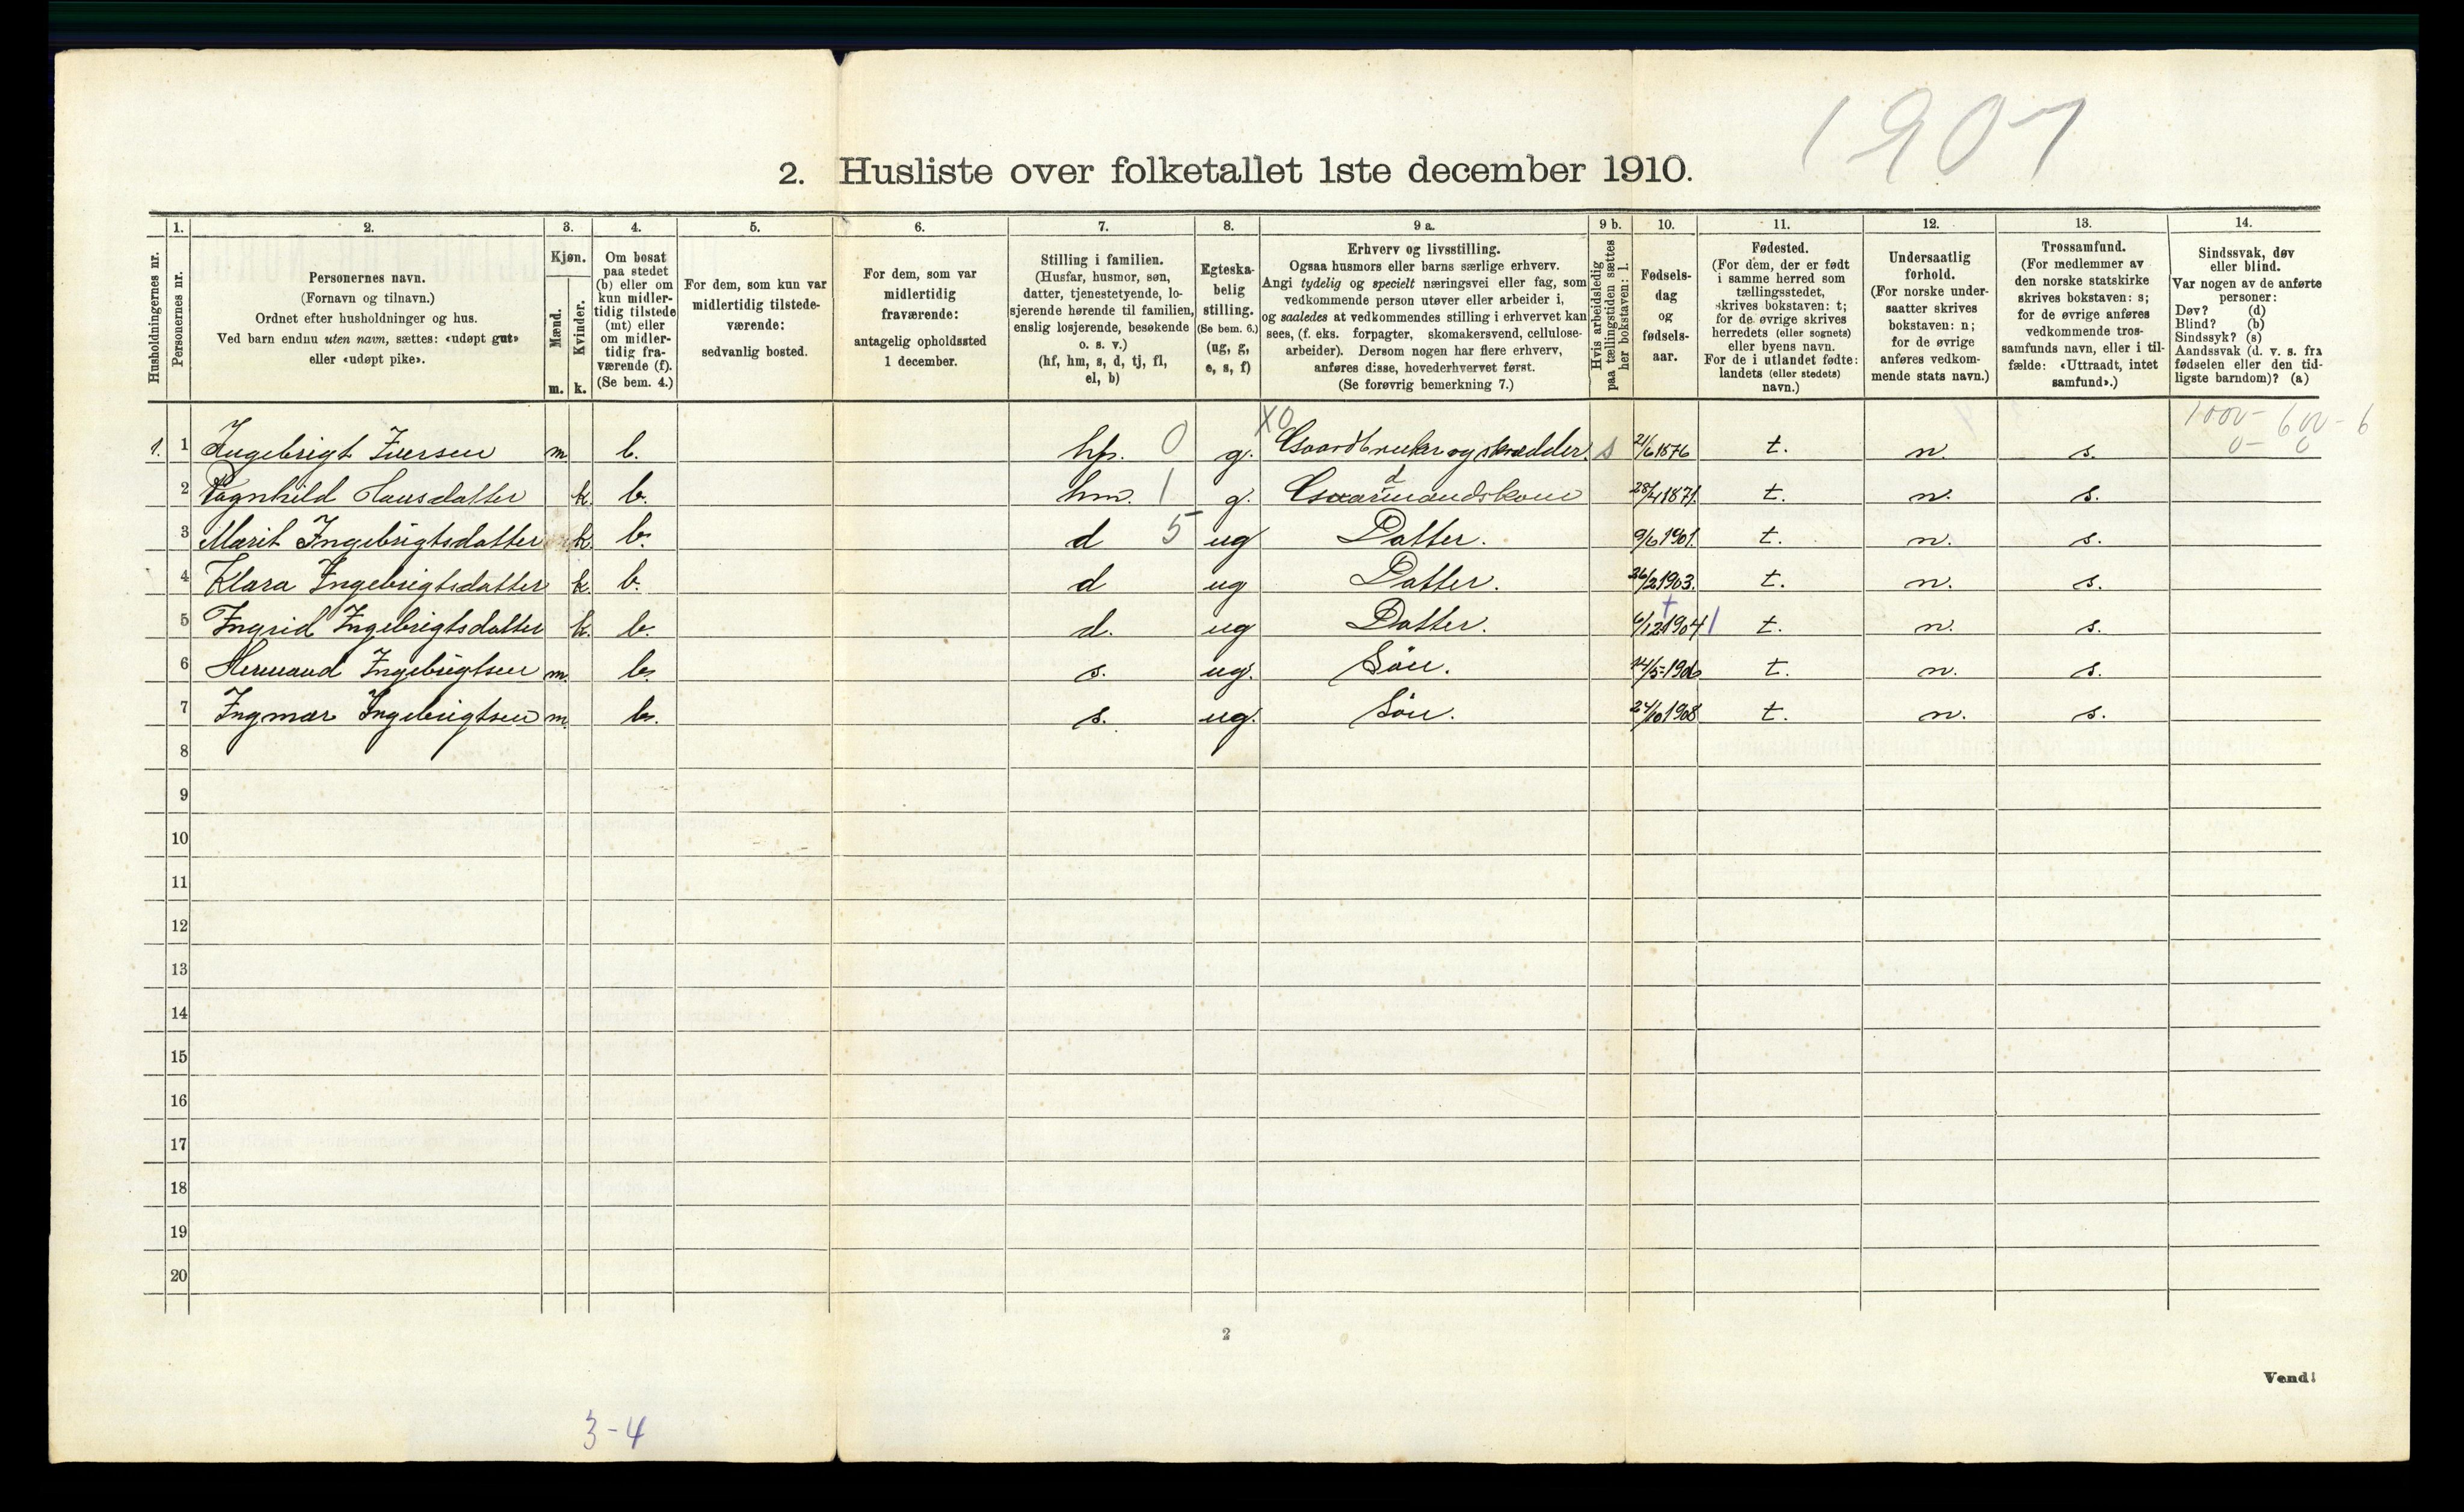 1907
2. Husliste over folketallet 1ste december 1910.
Husholdningernes nr.
1.
Personernes nr.
2.
Personernes navn.
(Fornavn og tilnavn.)
Ordnet efter husholdninger og hus.
Ved barn endnu uten navn, sættes: «udøpt gut»
eller «udøpt pike».
3.
Kjøn.
Mænd.
Kvinder.
m. k.
4.
Om bosat
paa stedet
(b) eller om
kun midler-
tidig tilstede
(mt) eller
om midler-
tidig fra-
værende (f).
(Se bem. 4.)
5.
For dem, som kun var
midlertidig tilstede-
værende:
sedvanlig bosted.
6.
For dem, som var
midlertidig
fraværende:
antagelig opholdssted
1 december.
7.
Stilling i familien.
(Husfar, husmor, søn,
datter, tjenestetyende, lo-
sjerende hørende til familien,
enslig losjerende, besøkende
o. s. v.)
(hf, hm, s, d, tj, fl,
el, b)
8.
Egteska-
belig
stilling.
(Se bem. 6.)
(ug, g,
e, s, f)
9 a.
Erhverv og livsstilling.
Ogsaa husmors eller barns særlige erhverv.
Angi tydelig og specielt næringsvei eller fag, som
vedkommende person utøver eller arbeider i,
og saaledes at vedkommendes stilling i erhvervet kan
sees, (f. eks. forpagter, skomakersvend, cellulose-
arbeider). Dersom nogen har flere erhverv,
anføres disse, hovederhvervet først.
(Se forøvrig bemerkning 7.)
9 b.
Hvis arbeidsledig
paa tællingstiden sættes
her bokstaven: l.
10.
Fødsels-
dag
og
fødsels-
aar.
11.
Fødested.
(For dem, der er født
i samme herred som
tællingsstedet,
skrives bokstaven: t;
for de øvrige skrives
herredets (eller sognets)
eller byens navn.
For de i utlandet fødte:
landets (eller stedets)
navn.)
12.
Undersaatlig
forhold.
(For norske under-
saatter skrives
bokstaven: n;
for de øvrige
anføres vedkom-
mende stats navn.)
13.
Trossamfund.
(For medlemmer av
den norske statskirke
skrives bokstaven: s;
for de øvrige anføres
vedkommende tros-
samfunds navn, eller i til-
fælde: «Uttraadt, intet
samfund».)
14.
Sindssvak, døv
eller blind.
Var nogen av de anførte
personer:
Døv? (d)
Blind? (b)
Sindssyk? (s)
Aandssvak (d. v. s. fra
fødselen eller den tid-
ligste barndom)? (a)
X0 1000- 600 - 6
0- 0
1. 1 Ingebrigt Iversen m b. hf. 0 g. Gaardbruker og skrædder. s 21/6 1876 t. n. s.
2 Ragnhild Hansdatter k. b. hm. 1 g. Gaardmandskone 28/4 1871. t. n. s.
3 Marit Ingebrigtsdatter k. b. d 5 ug Datter. 9/6 1901. t. n. s.
4 Klara Ingebrigtsdatter k. b. d ug Datter. 26/2 1903. t. n. s.
5 Ingrid Ingebrigtsdatter k. b. d. ug Datter. 6/12 1904 t. n. s.
6 Hermand Ingebrigtsen m. b. s. ug. Sön. 14/5-1906 t. n. s.
7 Ingmar Ingebrigtsen m b. s. ug. Sön. 24/10 1908 t. n. s.
8
9
10
11
12
13
14
15
16
17
18
19
20
2
Vend!
3-4